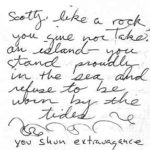 Scott, like a rock
you give not take.
an island - you
stand proudly
in the sea and
refuse to be
worn by the
tides
you shun extravagance